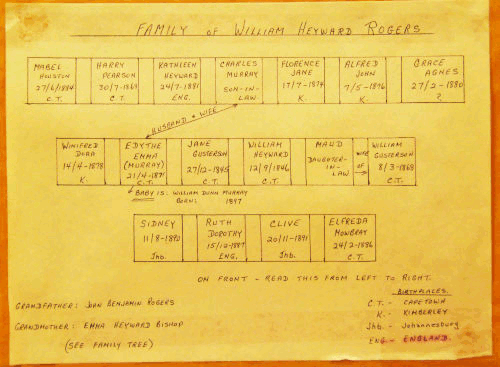 FAMILY of WILLIAM HEYWARD ROGERS
MABEL HOUSTON 27/6/1884 C.T.
HARRY PEARSON 30/7/1869 C.T.
KATHLEEN HEYWARD 24/7/1881 ENG.
CHARLES MURRAY SON-IN-LAW
FLORENCE JANE 17/7/1874 K.
ALFRED JOHN 7/5/1876 K.
GRACE AGNES 27/2/1880 ?
HUSBAND & WIFE
WINIFRED DORA 14/4/1878 K.
EDYTHE EMMA (MURRAY) 21/4/1871 C.T.
JANE GUSTERSON 27/12/1845 C.T.
WILLIAM HEYWARD 12/9/1846 C.T.
MAUD DAUGHTER-IN-LAW
WIFE OF
WILLIAM GUSTERSON 8/3/1868 C.T.
BABY IS: WILLIAM DUNN MURRAY
BORN: 1897
SIDNEY 11/8/1890 Jhb.
RUTH DOROTHY 15/12/1887 ENG.
CLIVE 20/11/1891 Jhb.
ELFREDA MOWBRAY 24/2/1886 C.T.
ON FRONT - READ THIS FROM LEFT TO RIGHT.
BIRTHPLACES.
GRANDFATHER: JOHN BENJAMIN ROGERS
C.T. - CAPETOWN
K. - KIMBERLEY
GRANDMOTHER: EMMA HEYWARD BISHOP
Jhb. - Johannesburg
(SEE FAMILY TREE)
ENG. - ENGLAND.